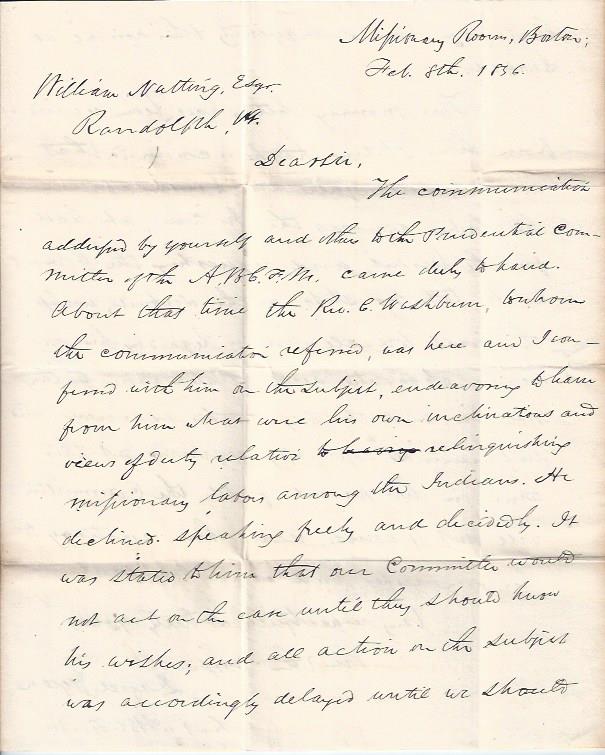 Missionary Rooms, Boston,
Feb. 8th. 1836.
William Nutting, Esqr.
Randolph, Vt.
Dear Sir,
The communication
addressed by yourself and others to the Prudential Com-
mittee of the A.B.C.F.M. came duly to hand.
About that time the Rev. C. Washburn, to whom
the communication referred, was here and I con-
ferred with him on the subject, endeavoring to learn
from him what were his own inclinations and
views of duty relative to relinquishing
missionary labors among the Indians. He
declined speaking freely and decidedly. It
was stated to him that our Committee would
not act on the case until they should know
his wishes; and all action on the subject
was accordingly delayed until we should